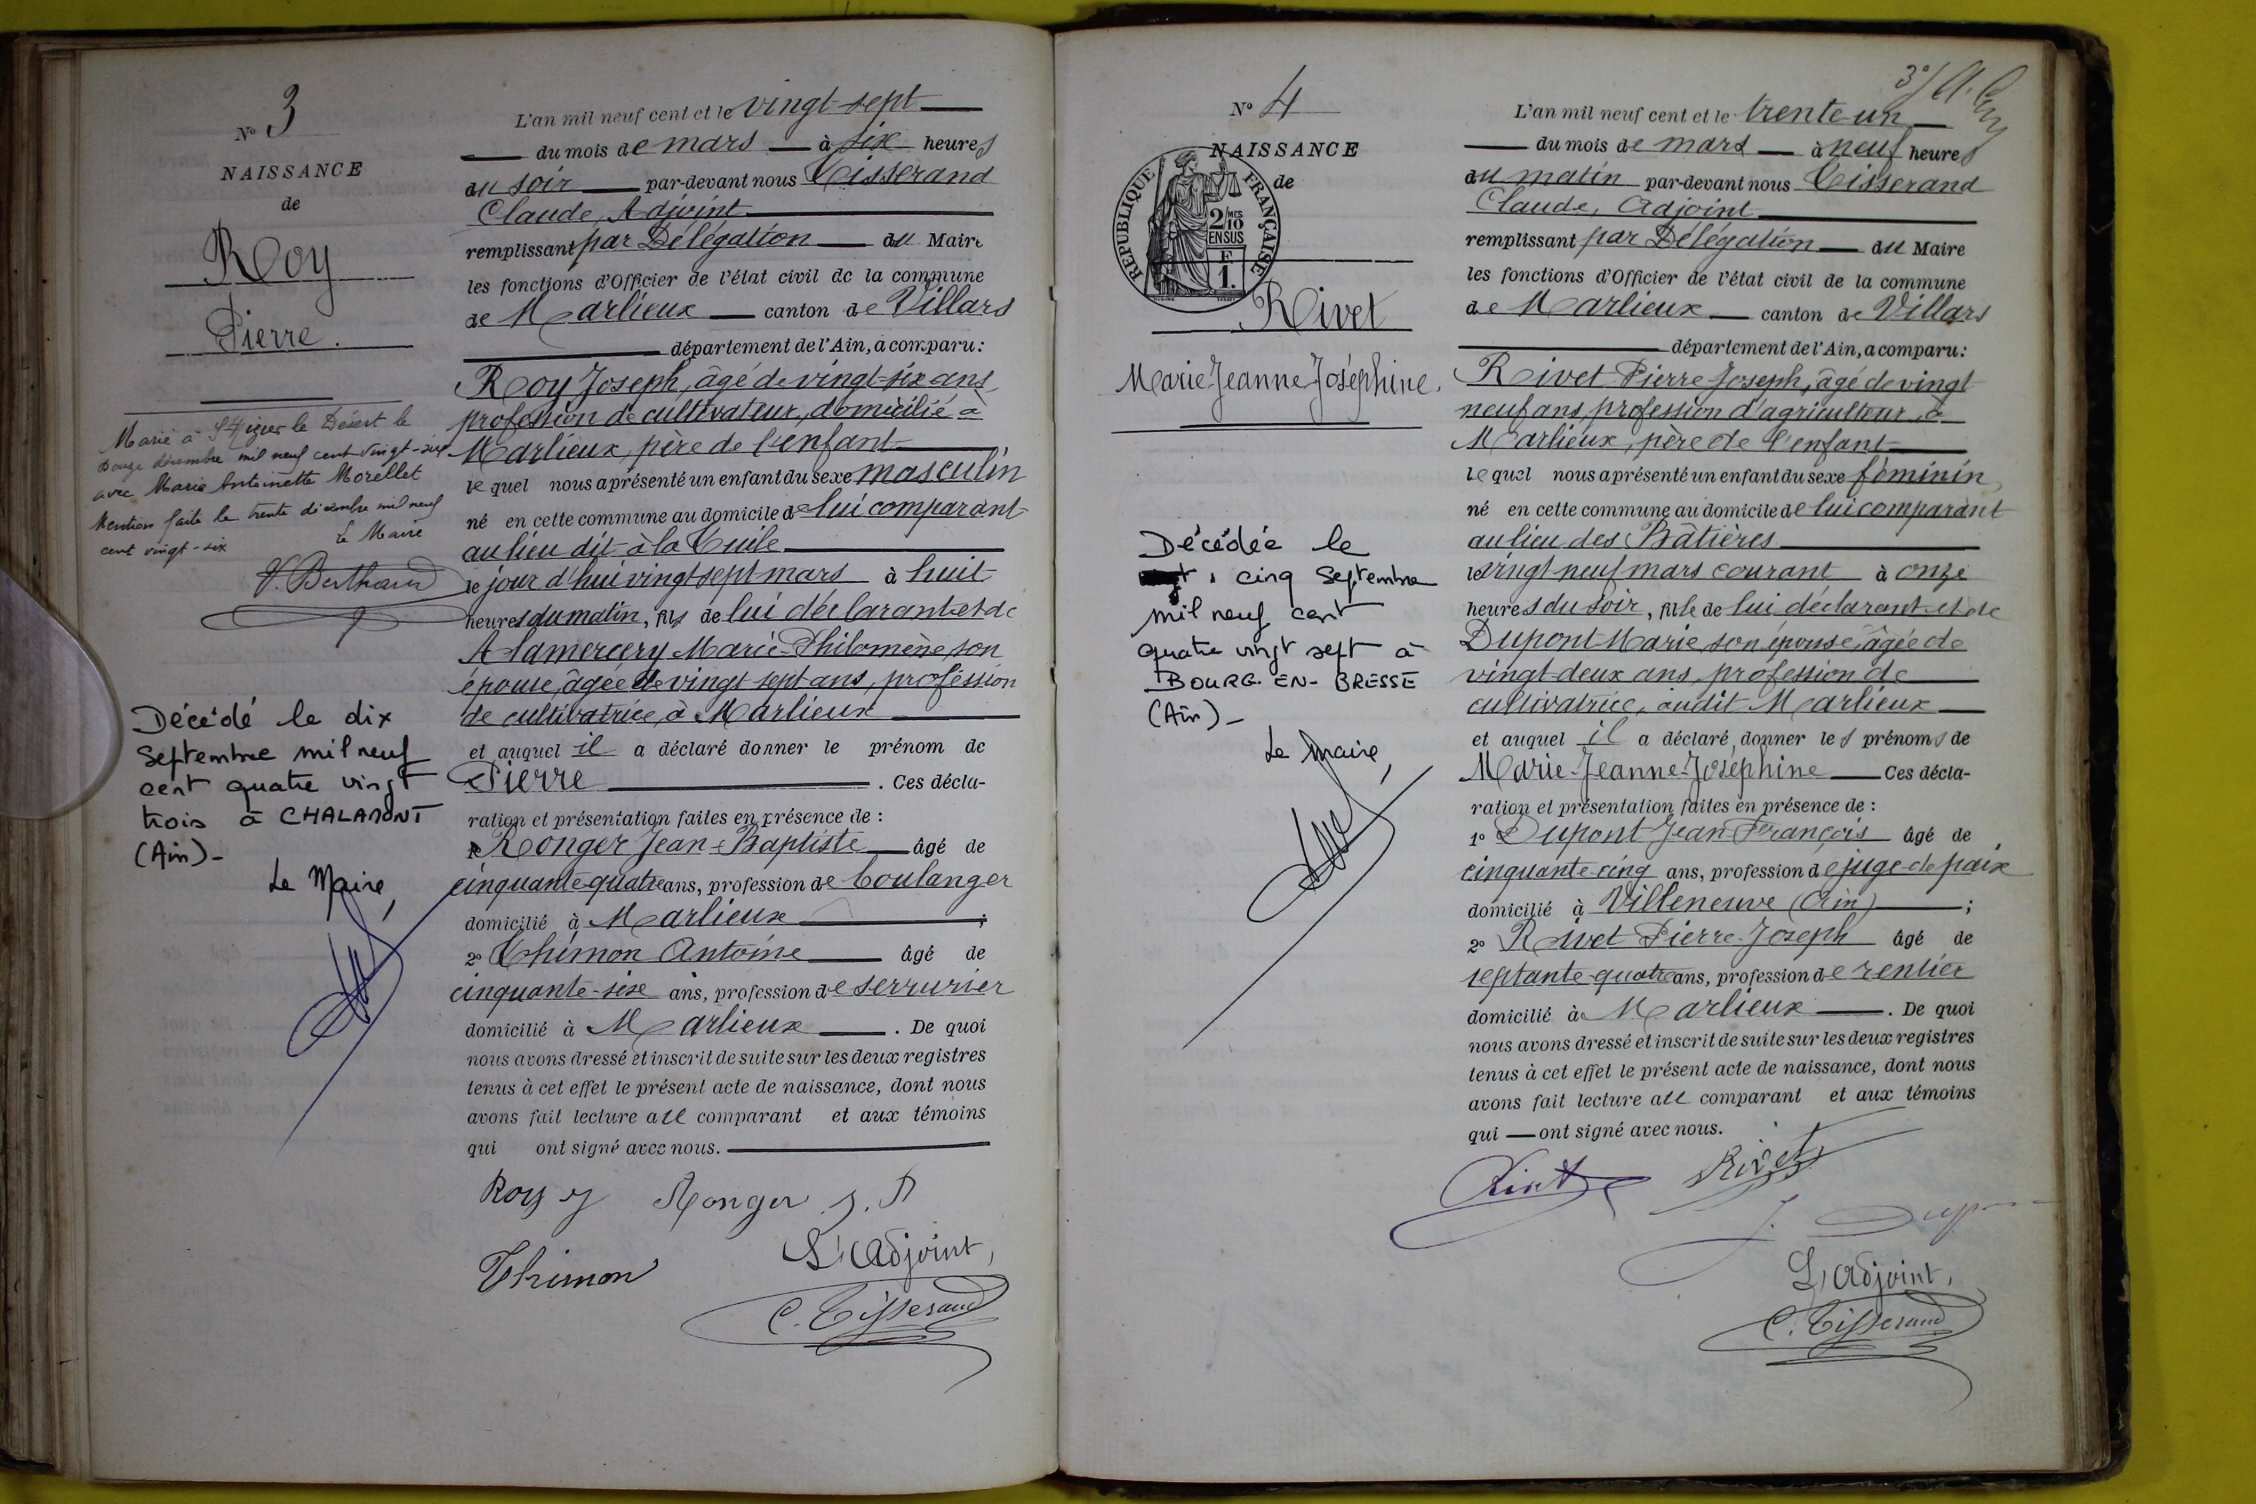 N° 3
NAISSANCE
de
Roy
Pierre.
Marié à St Nizier le Désert le
douze décembre mil neuf cent vingt-six
avec Marie Antoinette Morellet
Mention faite le trente décembre mil neuf
cent vingt-six Le Maire
V. Berthaud
Décédé le dix
Septembre mil neuf
cent quatre vingt
trois à CHALAMONT
(Ain)-
Le Maire,
L'an mil neuf cent et le vingt-sept
du mois de mars à six heures
du soir par-devant nous Tisserand
Claude, Adjoint
remplissant par Délégation du Maire
les fonctions d'Officier de l'état civil de la commune
de Marlieux canton de Villars
département de l'Ain, a comparu:
Roy Joseph, âgé de vingt-six ans,
profession de cultivateur, domicilié à
Marlieux, père de l'enfant
lequel nous a présenté un enfant du sexe masculin
né en cette commune au domicile de lui comparant
au lieu dit à la Tuile
le jour d'hui vingt sept mars à huit
heures du matin, fils de lui déclarant et de
Alamercery Marie-Philomène, son
épouse, âgée de vingt sept ans, profession
de cultivatrice, à Marlieux
et auquel il a déclaré donner le prénom de
Pierre . Ces décla-
ration et présentation faites en présence de :
1° Ronger Jean-Baptiste âgé de
cinquante-quatre ans, profession de boulanger
domicilié à Marlieux ;
2° Thimon Antoine âgé de
cinquante-six ans, profession de serrurier
domicilié à Marlieux . De quoi
nous avons dressé et inscrit de suite sur les deux registres
tenus à cet effet le présent acte de naissance, dont nous
avons fait lecture au comparant et aux témoins
qui ont signé avec nous.
Roy J Ronger J. B
Thimon L'Adjoint,
C. Tisserand
N° 4
NAISSANCE
de
REPUBLIQUE FRANÇAISE
2/10 MES
EN SUS
F
1.
Rivet
Marie-Jeanne-Joséphine.
Décédée le
cinq Septembre
mil neuf cent
quatre vingt sept à
BOURG-EN-BRESSE
(Ain)-
Le Maire,
3e/
L'an mil neuf cent et le trente-un
du mois de mars à neuf heures
du matin par-devant nous Tisserand
Claude, Adjoint
remplissant par Délégation du Maire
les fonctions d'Officier de l'état civil de la commune
de Marlieux canton de Villars
département de l'Ain, a comparu:
Rivet Pierre-Joseph, âgé de vingt
neuf ans, profession d'agriculteur, à
Marlieux, père de l'enfant
lequel nous a présenté un enfant du sexe féminin
né en cette commune au domicile de lui comparant
au lieu des Bâtières
le vingt-neuf mars courant à onze
heures du soir, fille de lui déclarant et de
Dupont Marie, son épouse, âgée de
vingt deux ans, profession de
cultivatrice, audit Marlieux
et auquel il a déclaré donner les prénoms de
Marie-Jeanne-Joséphine Ces décla-
ration et présentation faites en présence de :
1° Dupont Jean-François âgé de
cinquante-cinq ans, profession de juge de paix
domicilié à Villeneuve (Ain) ;
2° Rivet Pierre-Joseph âgé de
septante-quatre ans, profession de rentier
domicilié à Marlieux . De quoi
nous avons dressé et inscrit de suite sur les deux registres
tenus à cet effet le présent acte de naissance, dont nous
avons fait lecture au comparant et aux témoins
qui ont signé avec nous.
Rivet Rivet
J. Dupont
L'Adjoint,
C. Tisserand